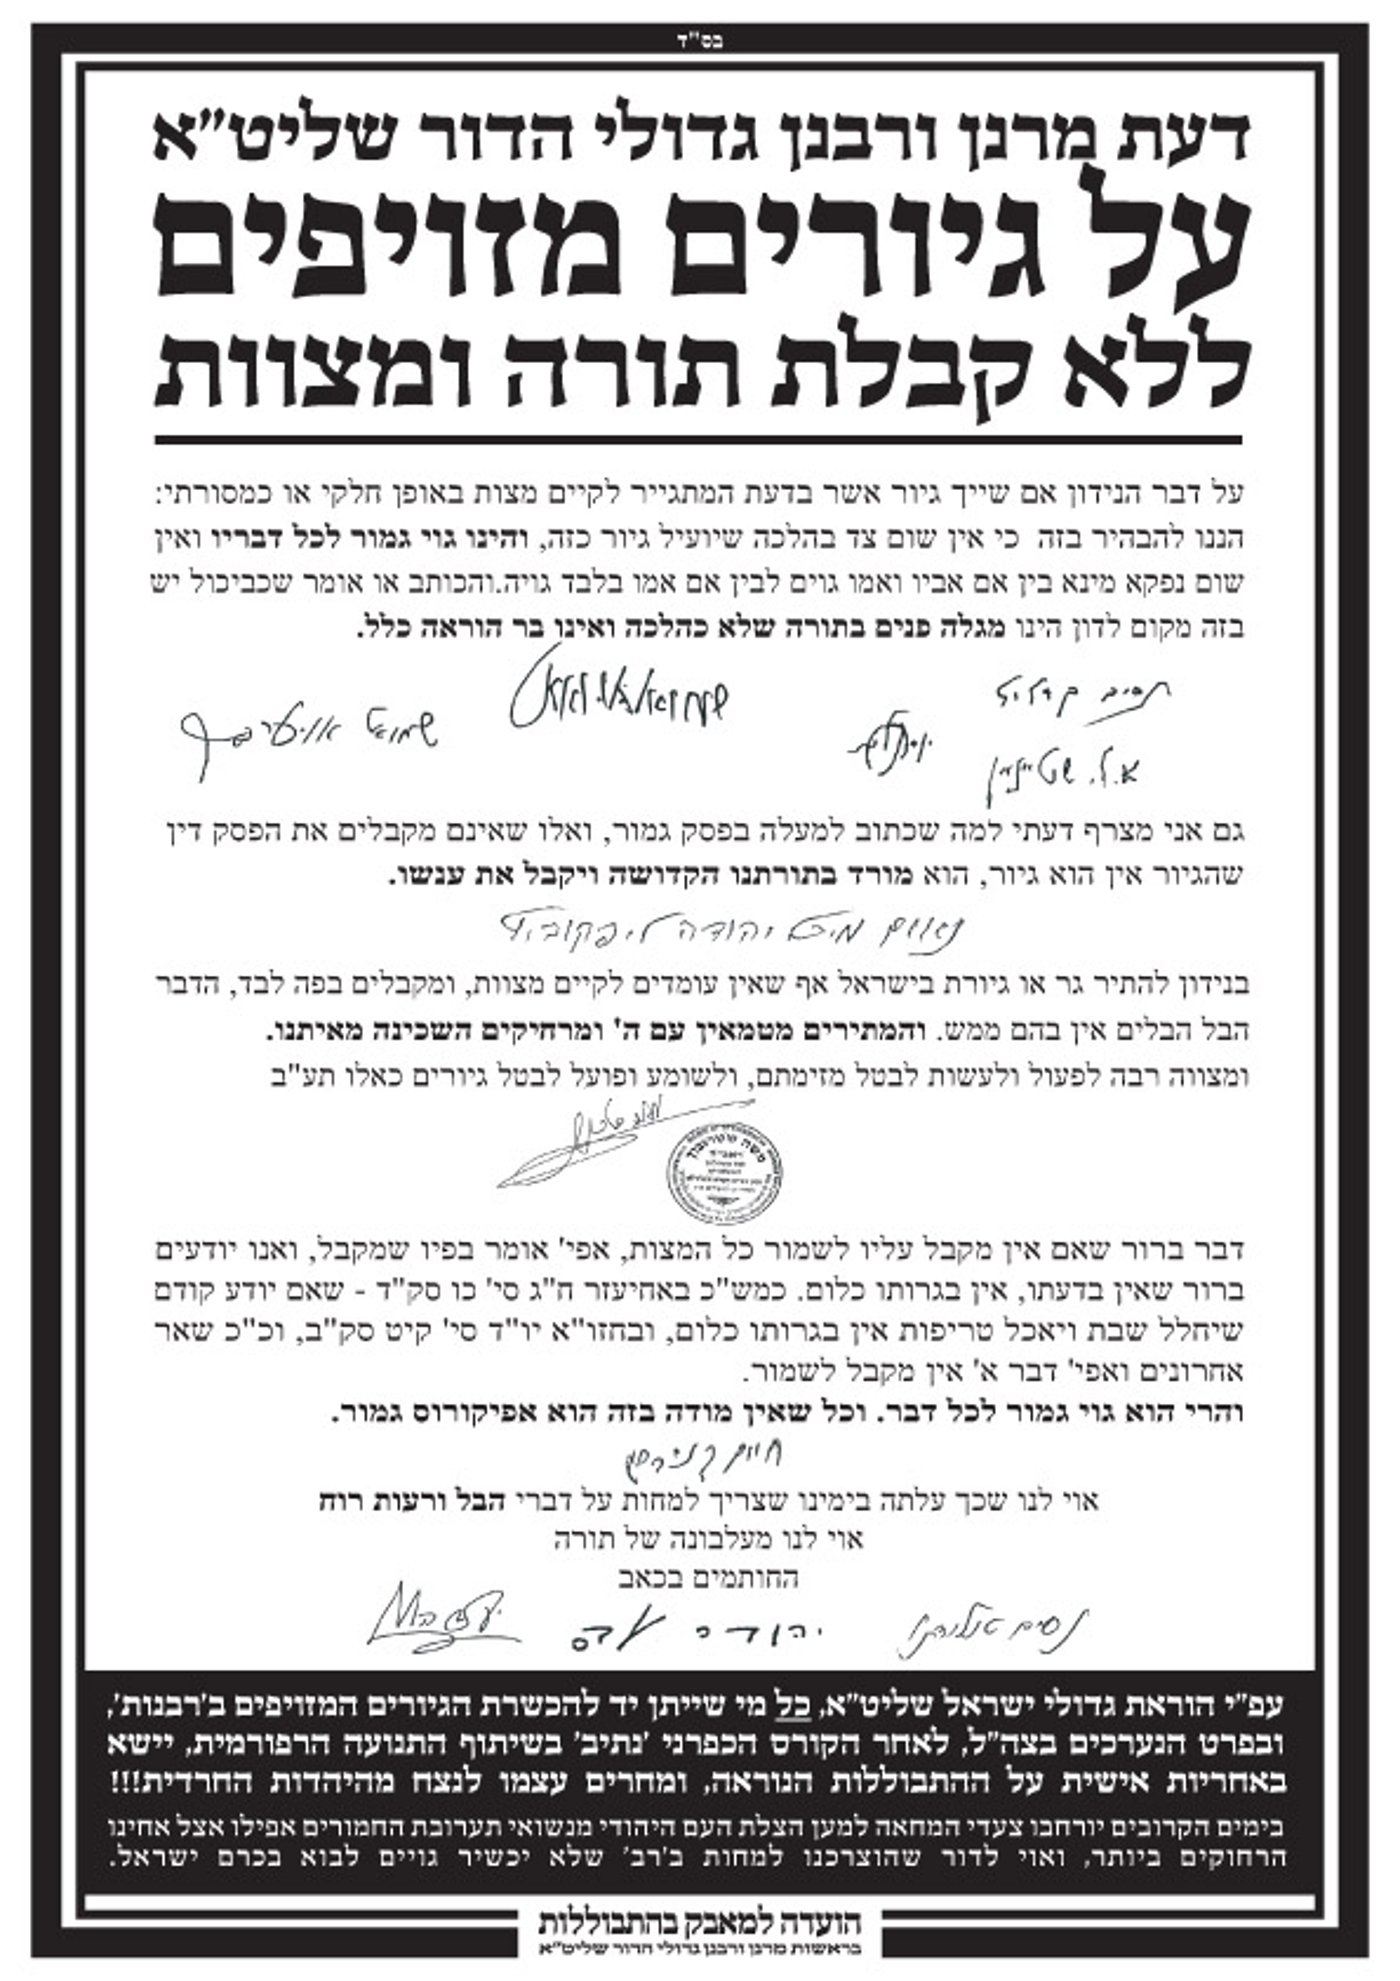 בס"ד
דעת מרנן ורבנן גדולי הדור שליט"א
על גיורים מזויפים
ללא קבלת תורה ומצוות
על דבר הנידון אם שייך גיור אשר בדעת המתגייר לקיים מצות באופן חלקי או כמסורתי:
הננו להבהיר בזה כי אין שום צד בהלכה שיועיל גיור כזה, והינו גוי גמור לכל דבריו ואין
שום נפקא מינא בין אם אביו ואמו גוים לבין אם אמו בלבד גויה.והכותב או אומר שכביכול יש
בזה מקום לדון הינו מגלה פנים בתורה שלא כהלכה ואינו בר הוראה כלל.
נסים קרליץ
שמואל אויערבך
א.ל. שטיינמן
גם אני מצרף דעתי למה שכתוב למעלה בפסק גמור, ואלו שאינם מקבלים את הפסק דין
שהגיור אין הוא גיור, הוא מורד בתורתנו הקדושה ויקבל את ענשו.
מיכל יהודה ליפקוביץ
בנידון להתיר גר או גיורת בישראל אף שאין עומדים לקיים מצוות, ומקבלים בפה לבד, הדבר
הבל הבלים אין בהם ממש. והמתירים מטמאין עם ה' ומרחיקים השכינה מאיתנו.
ומצווה רבה לפעול ולעשות לבטל מזימתם, ולשומע ופועל לבטל גיורים כאלו תע"ב
משה שטרנבוך
דבר ברור שאם אין מקבל עליו לשמור כל המצות, אפי' אומר בפיו שמקבל, ואנו יודעים
ברור שאין בדעתו, אין בגרותו כלום. כמש"כ באחיעזר ח"ג סי' כו סק"ד - שאם יודע קודם
שיחלל שבת ויאכל טריפות אין בגרותו כלום, ובחזו"א יו"ד סי' קיט סק"ב, וכ"כ שאר
אחרונים ואפי' דבר א' אין מקבל לשמור.
והרי הוא גוי גמור לכל דבר. וכל שאין מודה בזה הוא אפיקורוס גמור.
חיים קניבסקי
אוי לנו שכך עלתה בימינו שצריך למחות על דברי הבל ורעות רוח
אוי לנו מעלבונה של תורה
החותמים בכאב
נסים טולידנו
יהודה עדס
עפ"י הוראת גדולי ישראל שליט"א, כל מי שייתן יד להכשרת הגיורים המזויפים ב'רבנות',
ובפרט הנערכים בצה"ל, לאחר הקורס הכפרני 'נתיב' בשיתוף התנועה הרפורמית, יישא
באחריות אישית על ההתבוללות הנוראה, ומחרים עצמו לנצח מהיהדות החרדית!!!
בימים הקרובים יורחבו צעדי המחאה למען הצלת העם היהודי מנשואי תערובת החמורים אפילו אצל אחינו
הרחוקים ביותר, ואוי לדור שהוצרכנו למחות ב'רב' שלא יכשיר גויים לבוא בכרם ישראל.
הועדה למאבק בהתבוללות
בראשות מרנן ורבנן גדולי הדור שליט"א